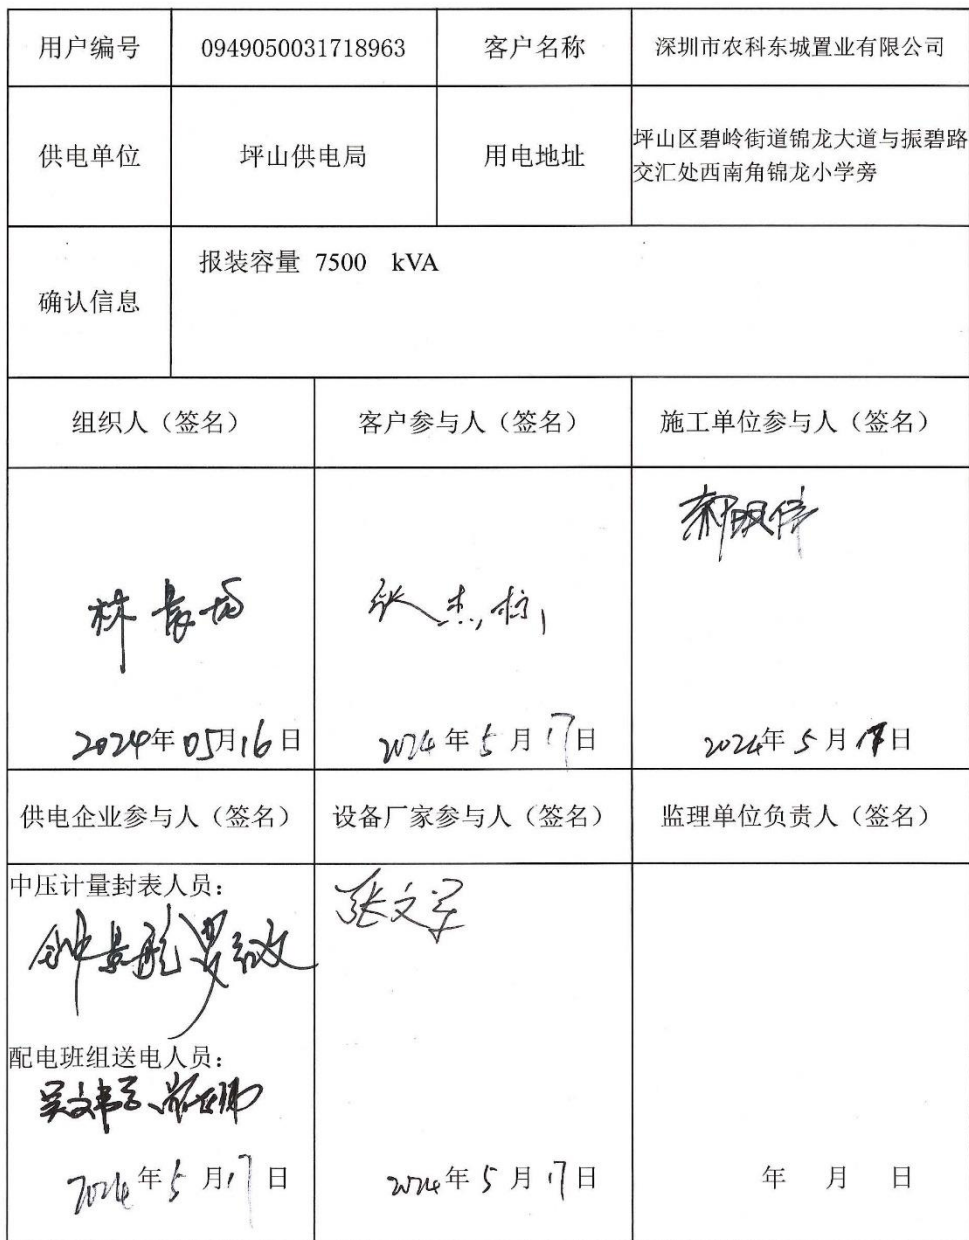 用户编号 0949050031718963 客户名称 深圳市农科东城置业有限公司
供电单位 坪山供电局 用电地址 坪山区碧岭街道锦龙大道与振碧路
交汇处西南角锦龙小学旁
确认信息 报装容量 7500 kVA
组织人（签名） 客户参与人（签名） 施工单位参与人（签名）
林
张杰
2024年05月16日 2024年5月17日 2024年5月 日
供电企业参与人（签名） 设备厂家参与人（签名） 监理单位负责人（签名）
中压计量封表人员：
张文军
配电班组送电人员：
2024年5月17日 2024年5月17日 年 月 日